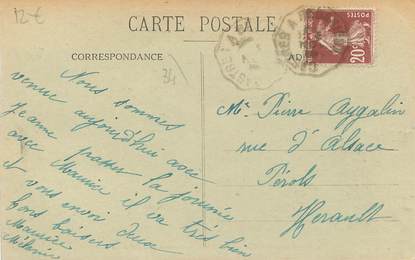 12€
CARTE POSTALE
CORRESPONDANCE
34
20c
Nous sommes
venue aujourd'hui avec
Jeanne passer la journée
avec Maurice il va très bien
et vous envoi deux
bons baisers
Maurice
Mr Pierre Aygalin
rue d'Alsace
Pérols
Herault